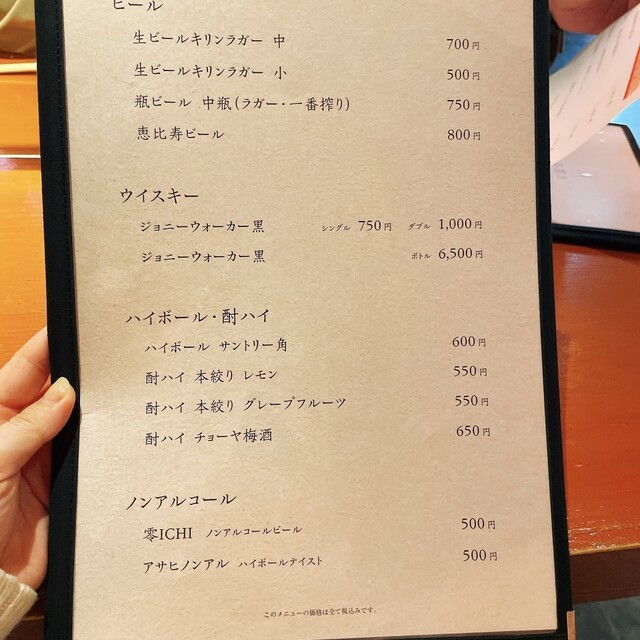 ビール
生ビールキリンラガー 中 700円
生ビールキリンラガー 小 500円
瓶ビール 中瓶(ラガー・一番搾り) 750円
恵比寿ビール 800円
ウイスキー
ジョニーウォーカー黒 シングル 750円 ダブル 1,000円
ジョニーウォーカー黒 ボトル 6,500円
ハイボール・酎ハイ
ハイボール サントリー角 600円
酎ハイ 本絞り レモン 550円
酎ハイ 本絞り グレープフルーツ 550円
酎ハイ チョーヤ梅酒 650円
ノンアルコール
零ICHI ノンアルコールビール 500円
アサヒノンアル ハイボールテイスト 500円
このメニューの価格は全て税込みです。